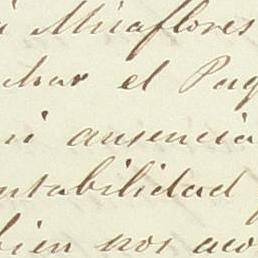 á Miraflores
char el Paq
mi ausencia
ntabilidad
bien nos aco